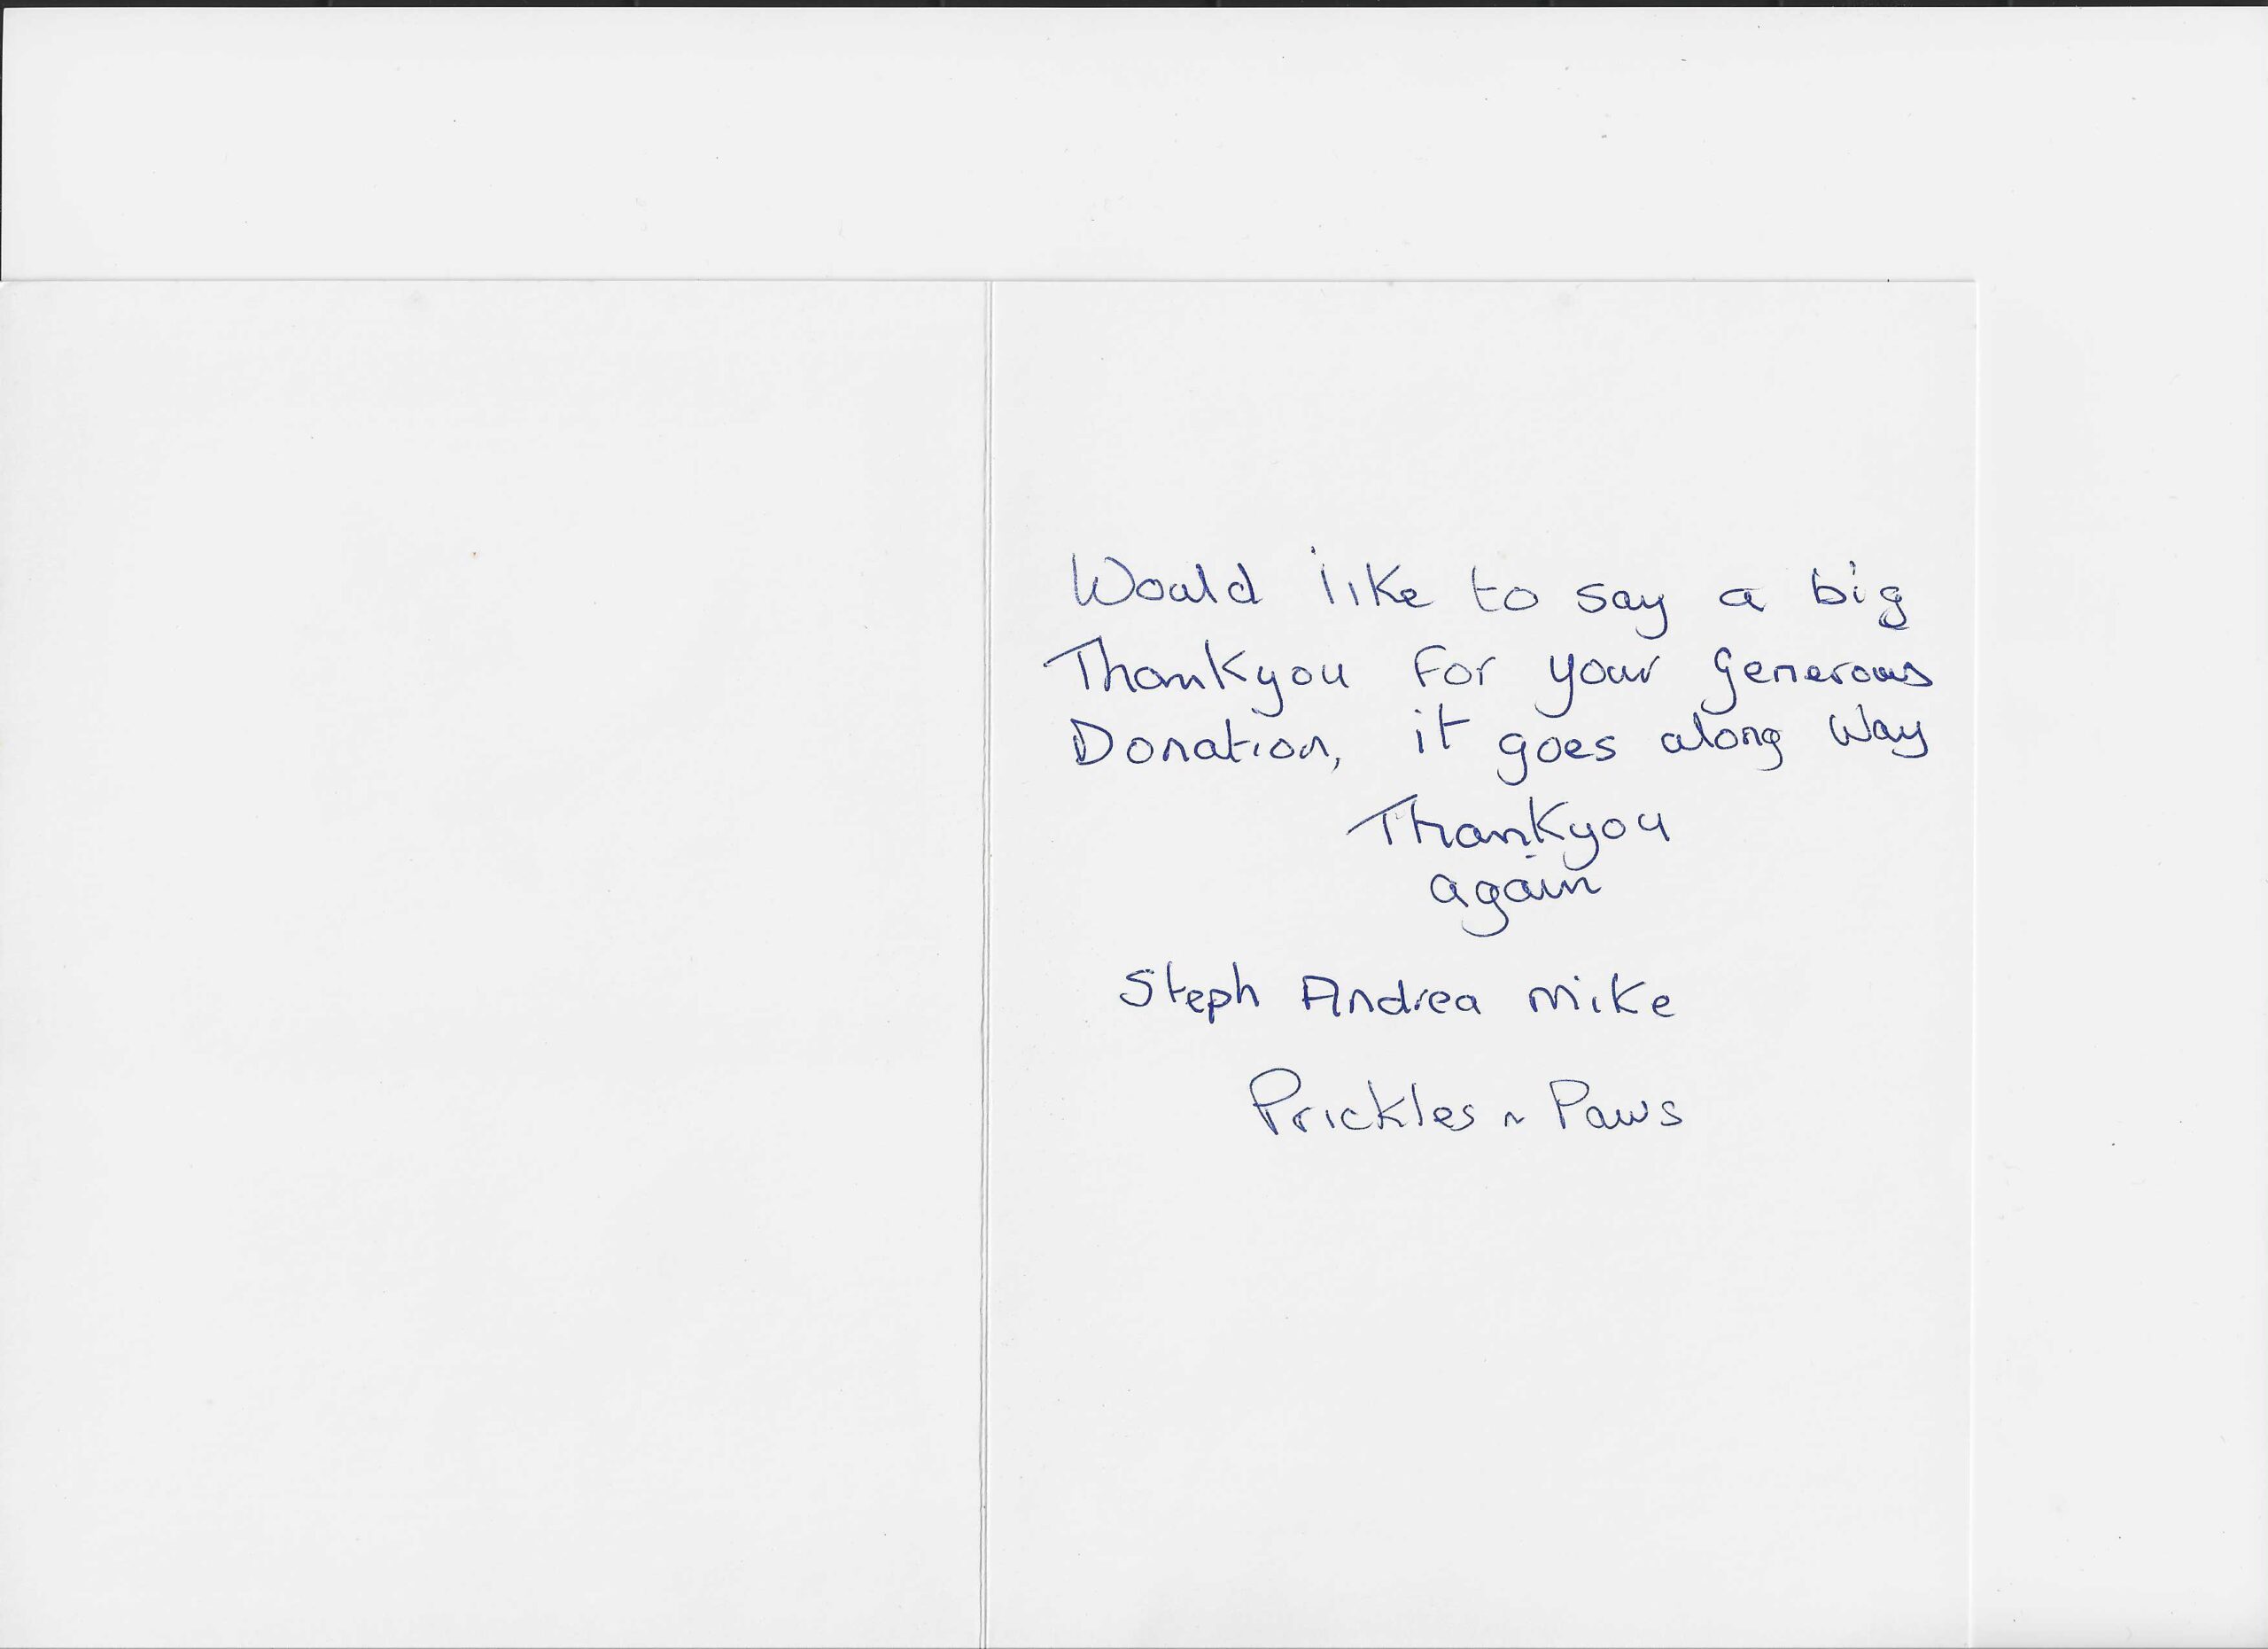 Would like to say a big
Thankyou For your generous
Donation, it goes along way
Thankyou
again
Steph Andrea Mike
Prickles n Paws